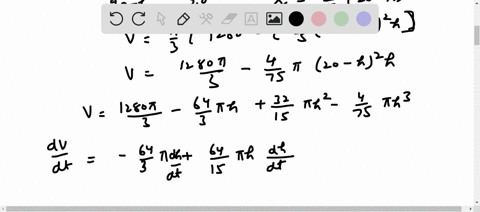 V = π/3 ( 1280 - (
V = 1280π/3 - 4/75 π (20-h)²h
V = 1280π/3 - 64/3 πh + 32/15 πh² - 4/75 πh³
dV/dt = - 64/3 π dh/dt + 64/15 πh dh/dt